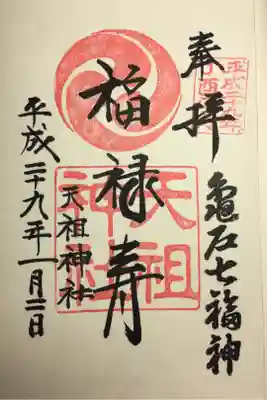 奉拝
亀石七福神
福禄寿
天祖神社
平成二十九年一月二日
天祖神社
平成二十九年